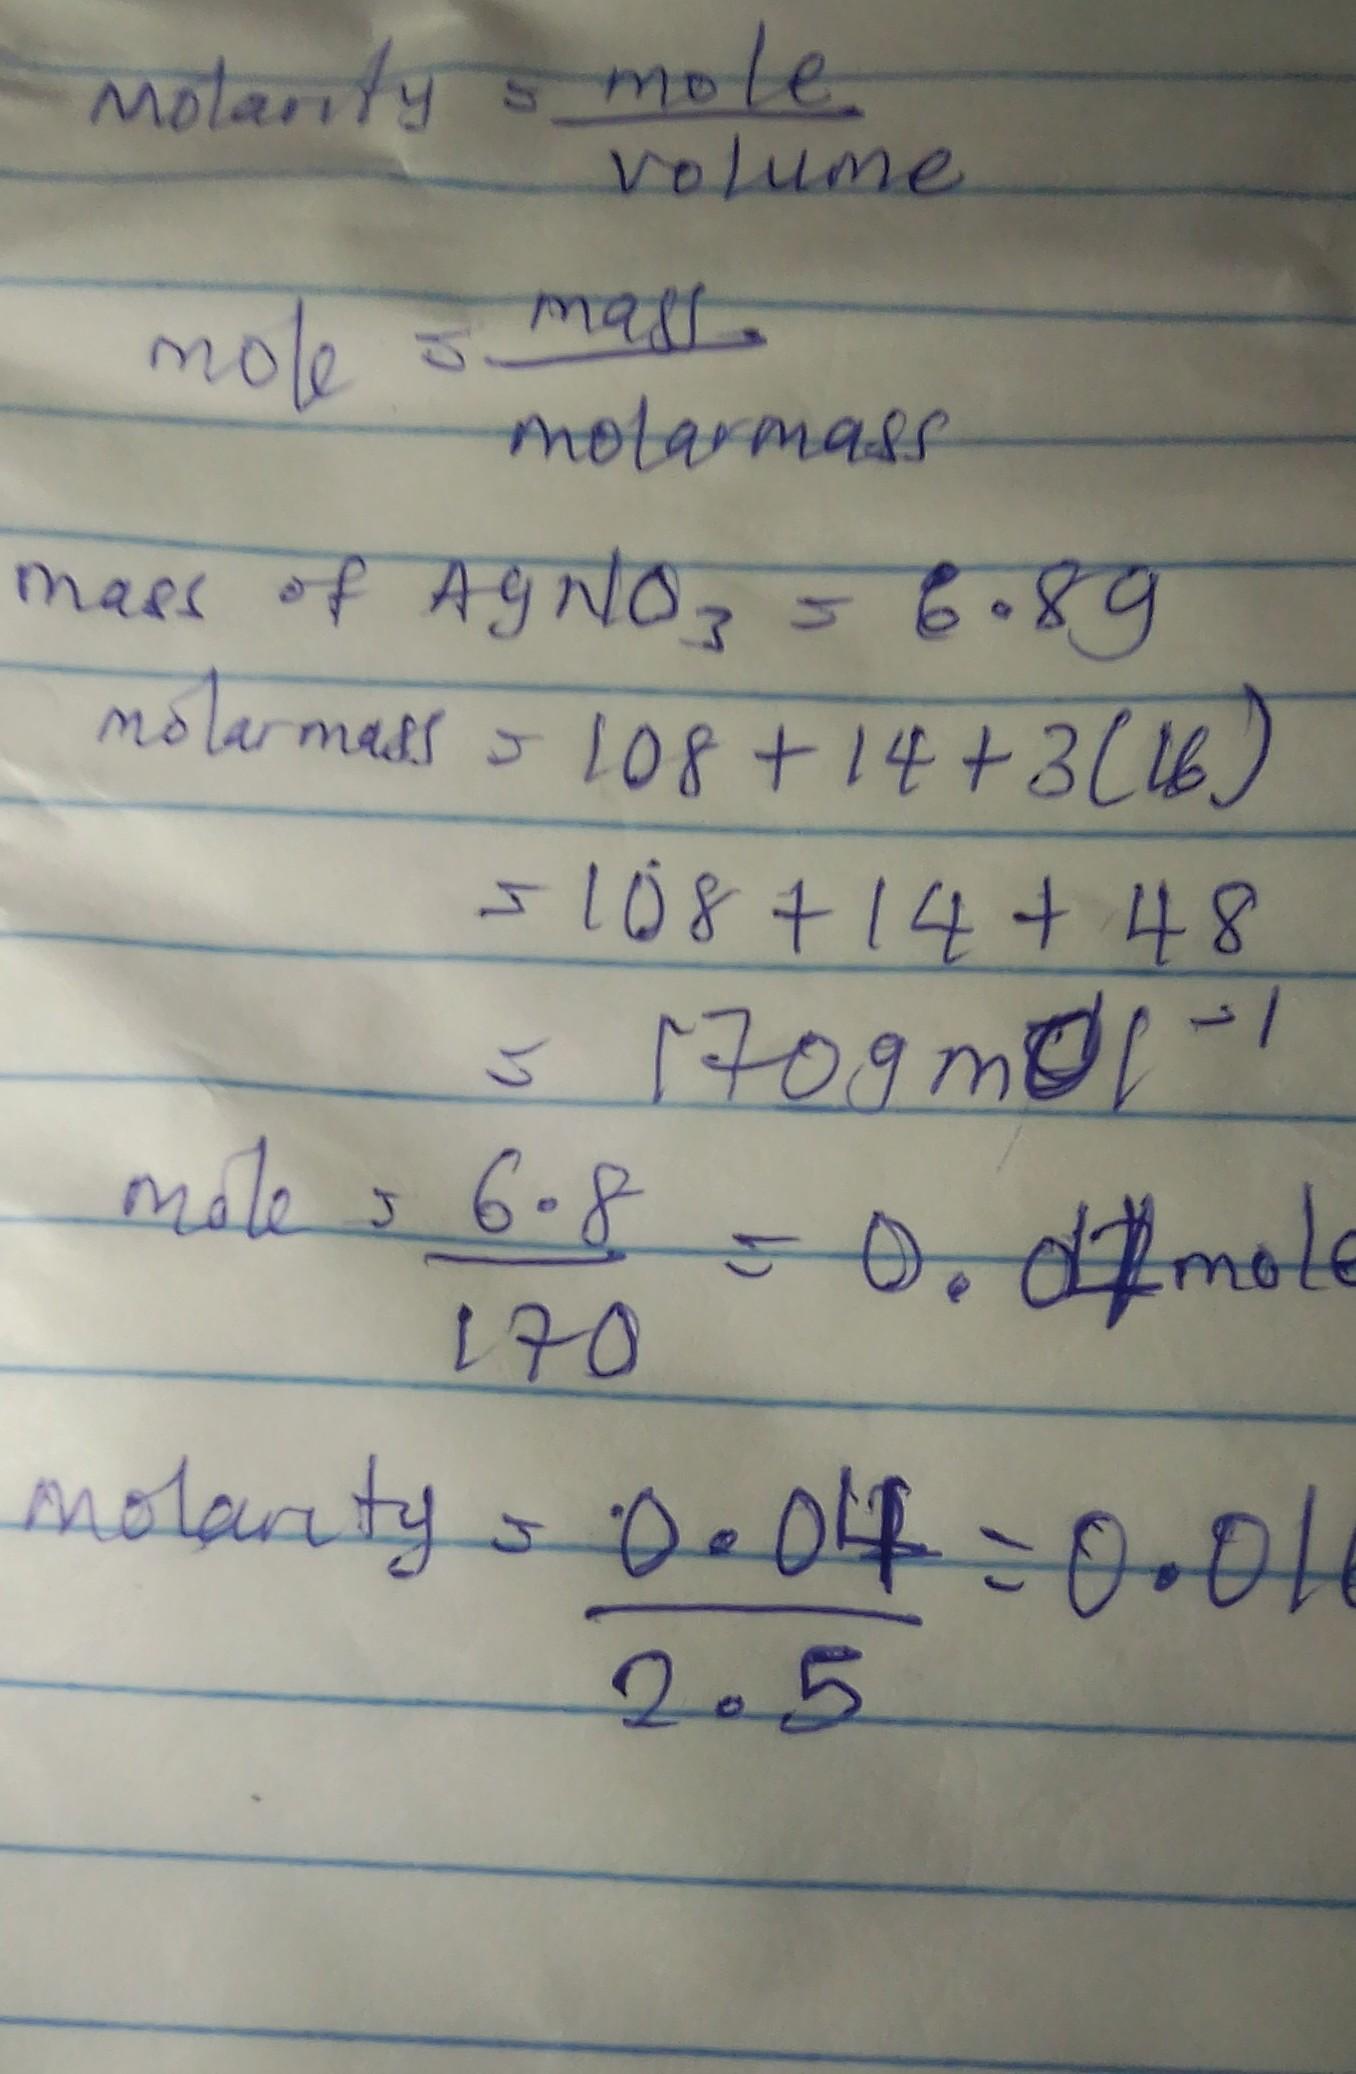 Molarity = mole
volume
mole = mass
molarmass
mass of AgNO3 = 6.8g
molarmass = 108 + 14 + 3(16)
= 108 + 14 + 48
= 170gmol-1
mole = 6.8 = 0.04mole
170
molarity = 0.04 = 0.016
2.5